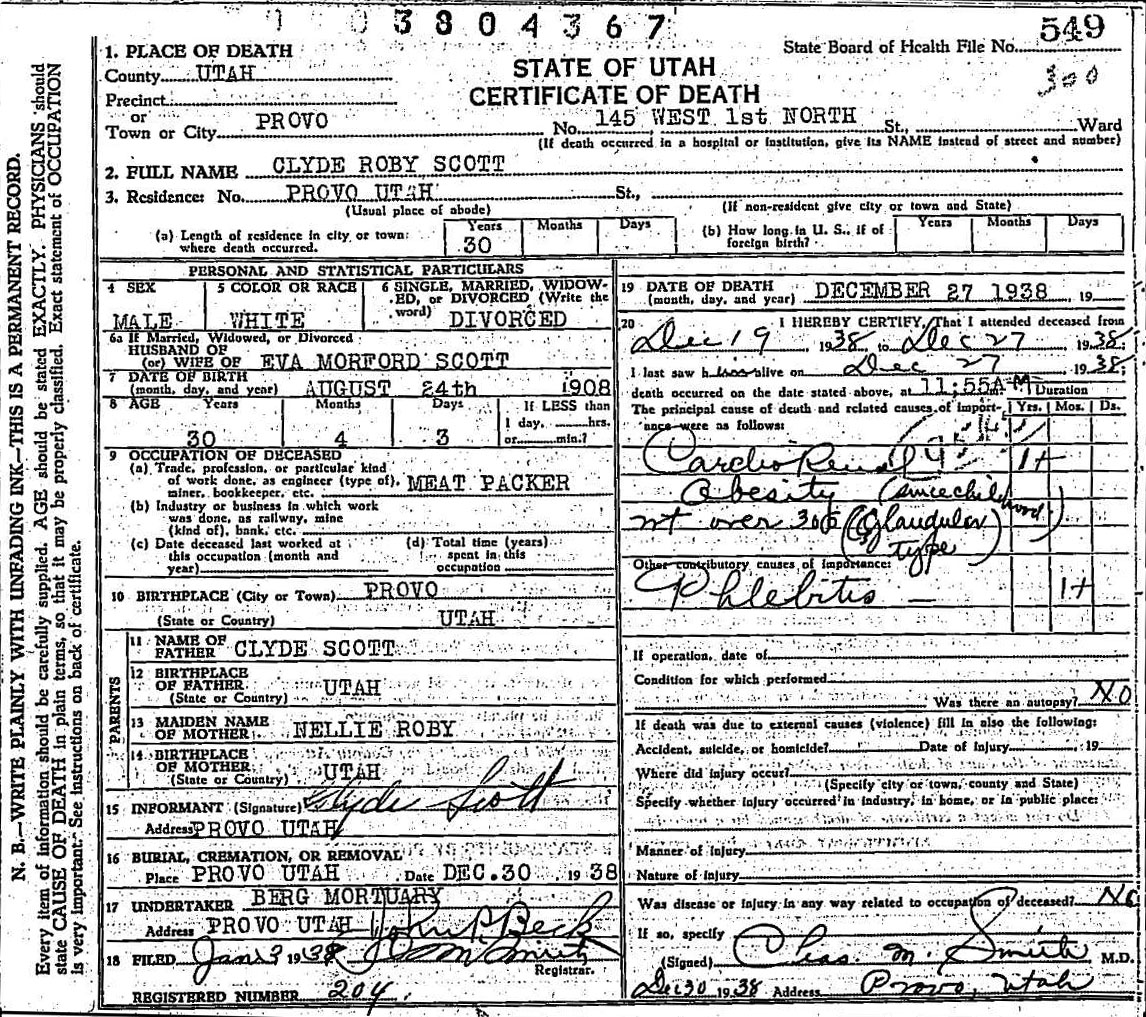 3804367
State Board of Health File No. 549
300
1. PLACE OF DEATH
County UTAH
STATE OF UTAH
CERTIFICATE OF DEATH
Precinct
or
Town or City PROVO
No. 145 WEST 1st NORTH St., Ward
(If death occurred in a hospital or institution, give its NAME instead of street and number)
2. FULL NAME CLYDE ROBY SCOTT
3. Residence: No. PROVO UTAH St.,
(Usual place of abode)
(If non-resident give city or town and State)
(a) Length of residence in city or town: where death occurred.
Years Months Days
30
(b) How long in U. S., if of foreign birth?
Years Months Days
PERSONAL AND STATISTICAL PARTICULARS
4 SEX
MALE
5 COLOR OR RACE
WHITE
6 SINGLE, MARRIED, WIDOW-
ED, or DIVORCED (Write the
word) DIVORCED
6a If Married, Widowed, or Divorced
HUSBAND OF
(or) WIFE OF EVA MORFORD SCOTT
7 DATE OF BIRTH
(month, day, and year) AUGUST 24th 1908
8 AGE Years Months Days
If LESS than
1 day, hrs.
or min.?
30 4 3
9 OCCUPATION OF DECEASED
(a) Trade, profession, or particular kind
of work done, as engineer (type of), MEAT PACKER
miner, bookkeeper, etc.
(b) Industry or business in which work
was done, as railway, mine
(kind of), bank, etc.
(c) Date deceased last worked at
this occupation (month and
year)
(d) Total time (years)
spent in this
occupation
10 BIRTHPLACE (City or Town) PROVO
(State or Country) UTAH
PARENTS
11 NAME OF
FATHER CLYDE SCOTT
12 BIRTHPLACE
OF FATHER UTAH
(State or Country)
13 MAIDEN NAME
OF MOTHER NELLIE ROBY
14 BIRTHPLACE
OF MOTHER UTAH
(State or Country)
15 INFORMANT (Signature) Clyde Scott
Address PROVO UTAH
16 BURIAL, CREMATION, OR REMOVAL
Place PROVO UTAH Date DEC.30 1938
17 UNDERTAKER BERG MORTUARY
Address PROVO UTAH John P. Beck
18 FILED Jan 3 1938
Registrar.
REGISTERED NUMBER 204
19 DATE OF DEATH
(month, day, and year) DECEMBER 27 1938, 19
20 I HEREBY CERTIFY, That I attended deceased from
Dec 19 1938 to Dec 27 1938;
I last saw him alive on Dec 27 1938;
death occurred on the date stated above, at 11;55A M
Duration
The principal cause of death and related causes of import-
ance were as follows:
Yrs. Mos. Ds.
Cardio Renal 1+
Obesity (since childhood)
wt over 300 (Glandular
type)
Other contributory causes of importance:
Phlebitis - 1+
If operation, date of
Condition for which performed
Was there an autopsy? NO
If death was due to external causes (violence) fill in also the following:
Accident, suicide, or homicide? Date of Injury 19
Where did injury occur?
(Specify city or town, county and State)
Specify whether injury occurred in industry, in home, or in public place:
Manner of Injury
Nature of Injury
Was disease or injury in any way related to occupation of deceased? No
If so, specify
(Signed) Chas. M. Smith M.D.
Dec 30 1938 Address Provo, Utah
N. B.—WRITE PLAINLY WITH UNFADING INK—THIS IS A PERMANENT RECORD.
Every item of information should be carefully supplied. AGE should be stated EXACTLY. PHYSICIANS should
state CAUSE OF DEATH in plain terms, so that it may be properly classified. Exact statement of OCCUPATION
is very important. See instructions on back of certificate.